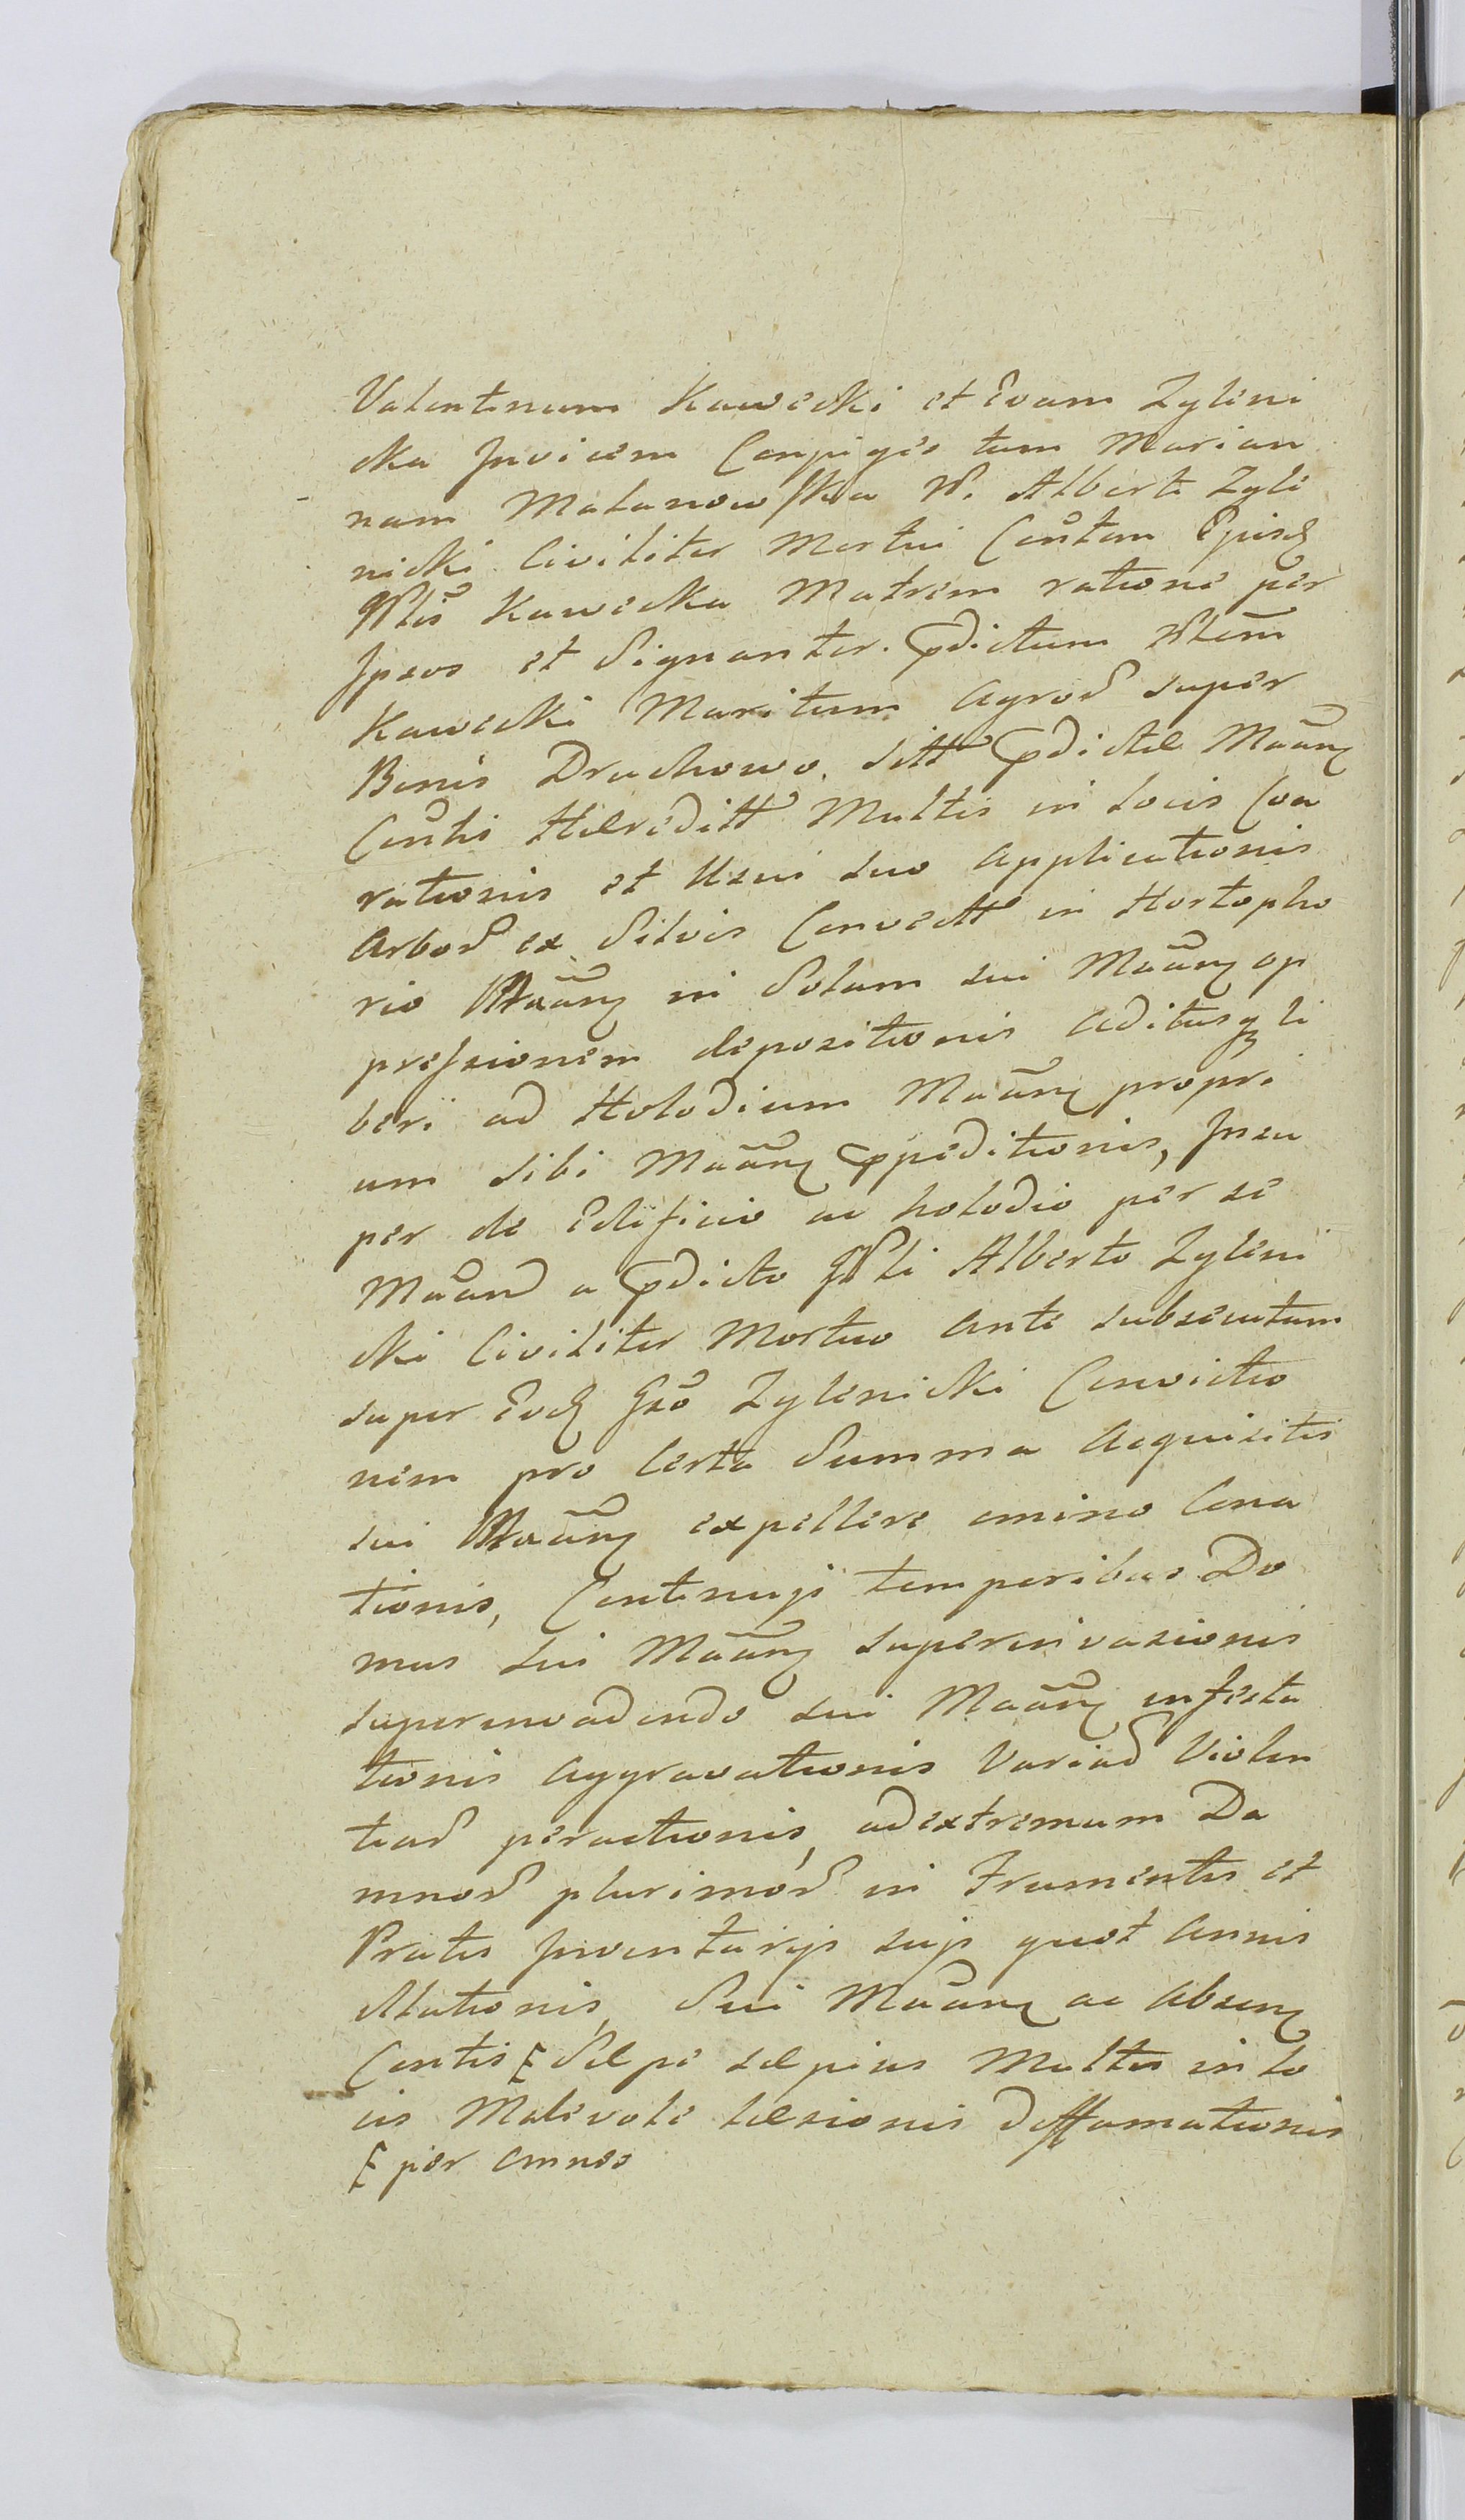 Valentinum Kawecki et Evam Zyleni
cka Invicem Conjuges tum Marian
nam Malanowska N. Alberti Zyle
nicki Civiliter Mortui Coñtem Ejusq
Kawecka Matrem ratione per
Ipsos et Signanter. dictum
Kawecki Maritum Agror super
Bonis Druchowo. sitt dictæ Mãañ
Coñtis Hæreditt Multis in Locis Coa
rationis et Usui suo Applicationis
Arbor ex Silvis Convectt in Hortopho
rio Mãañ in Solam sui Mãañ op
pressionem depositionis aditusq li
beri ad Holodium Mãañ propri
um sibi Mãañ peditionis, Insu
per de Edificio ac holodio per se
Mãan a dicto Alberto Zyleni
cki Civiliter Mortuo Ante subsecutam
super Eod Gso Zylenicki Convictio
nem pro Certa Summa Acquisitis
sui Mãañ expellere omino Cona
tionis, Continujs temporibus Do
mus sui Mãañ superinvasionis
superinvadendo sui Mãañ infesta
tionis Aggravationis Variar Violen
tiar peractionis, ad extremum Da
mnor plurimor in Frumentis et
Pratis Inventarijs sujs quot Annis
illationis, Sui Mãañ ac Absenz
Contis Sæpe sæpius Multis in lo
cis Malevole læsionis Deffamationis
per omnes